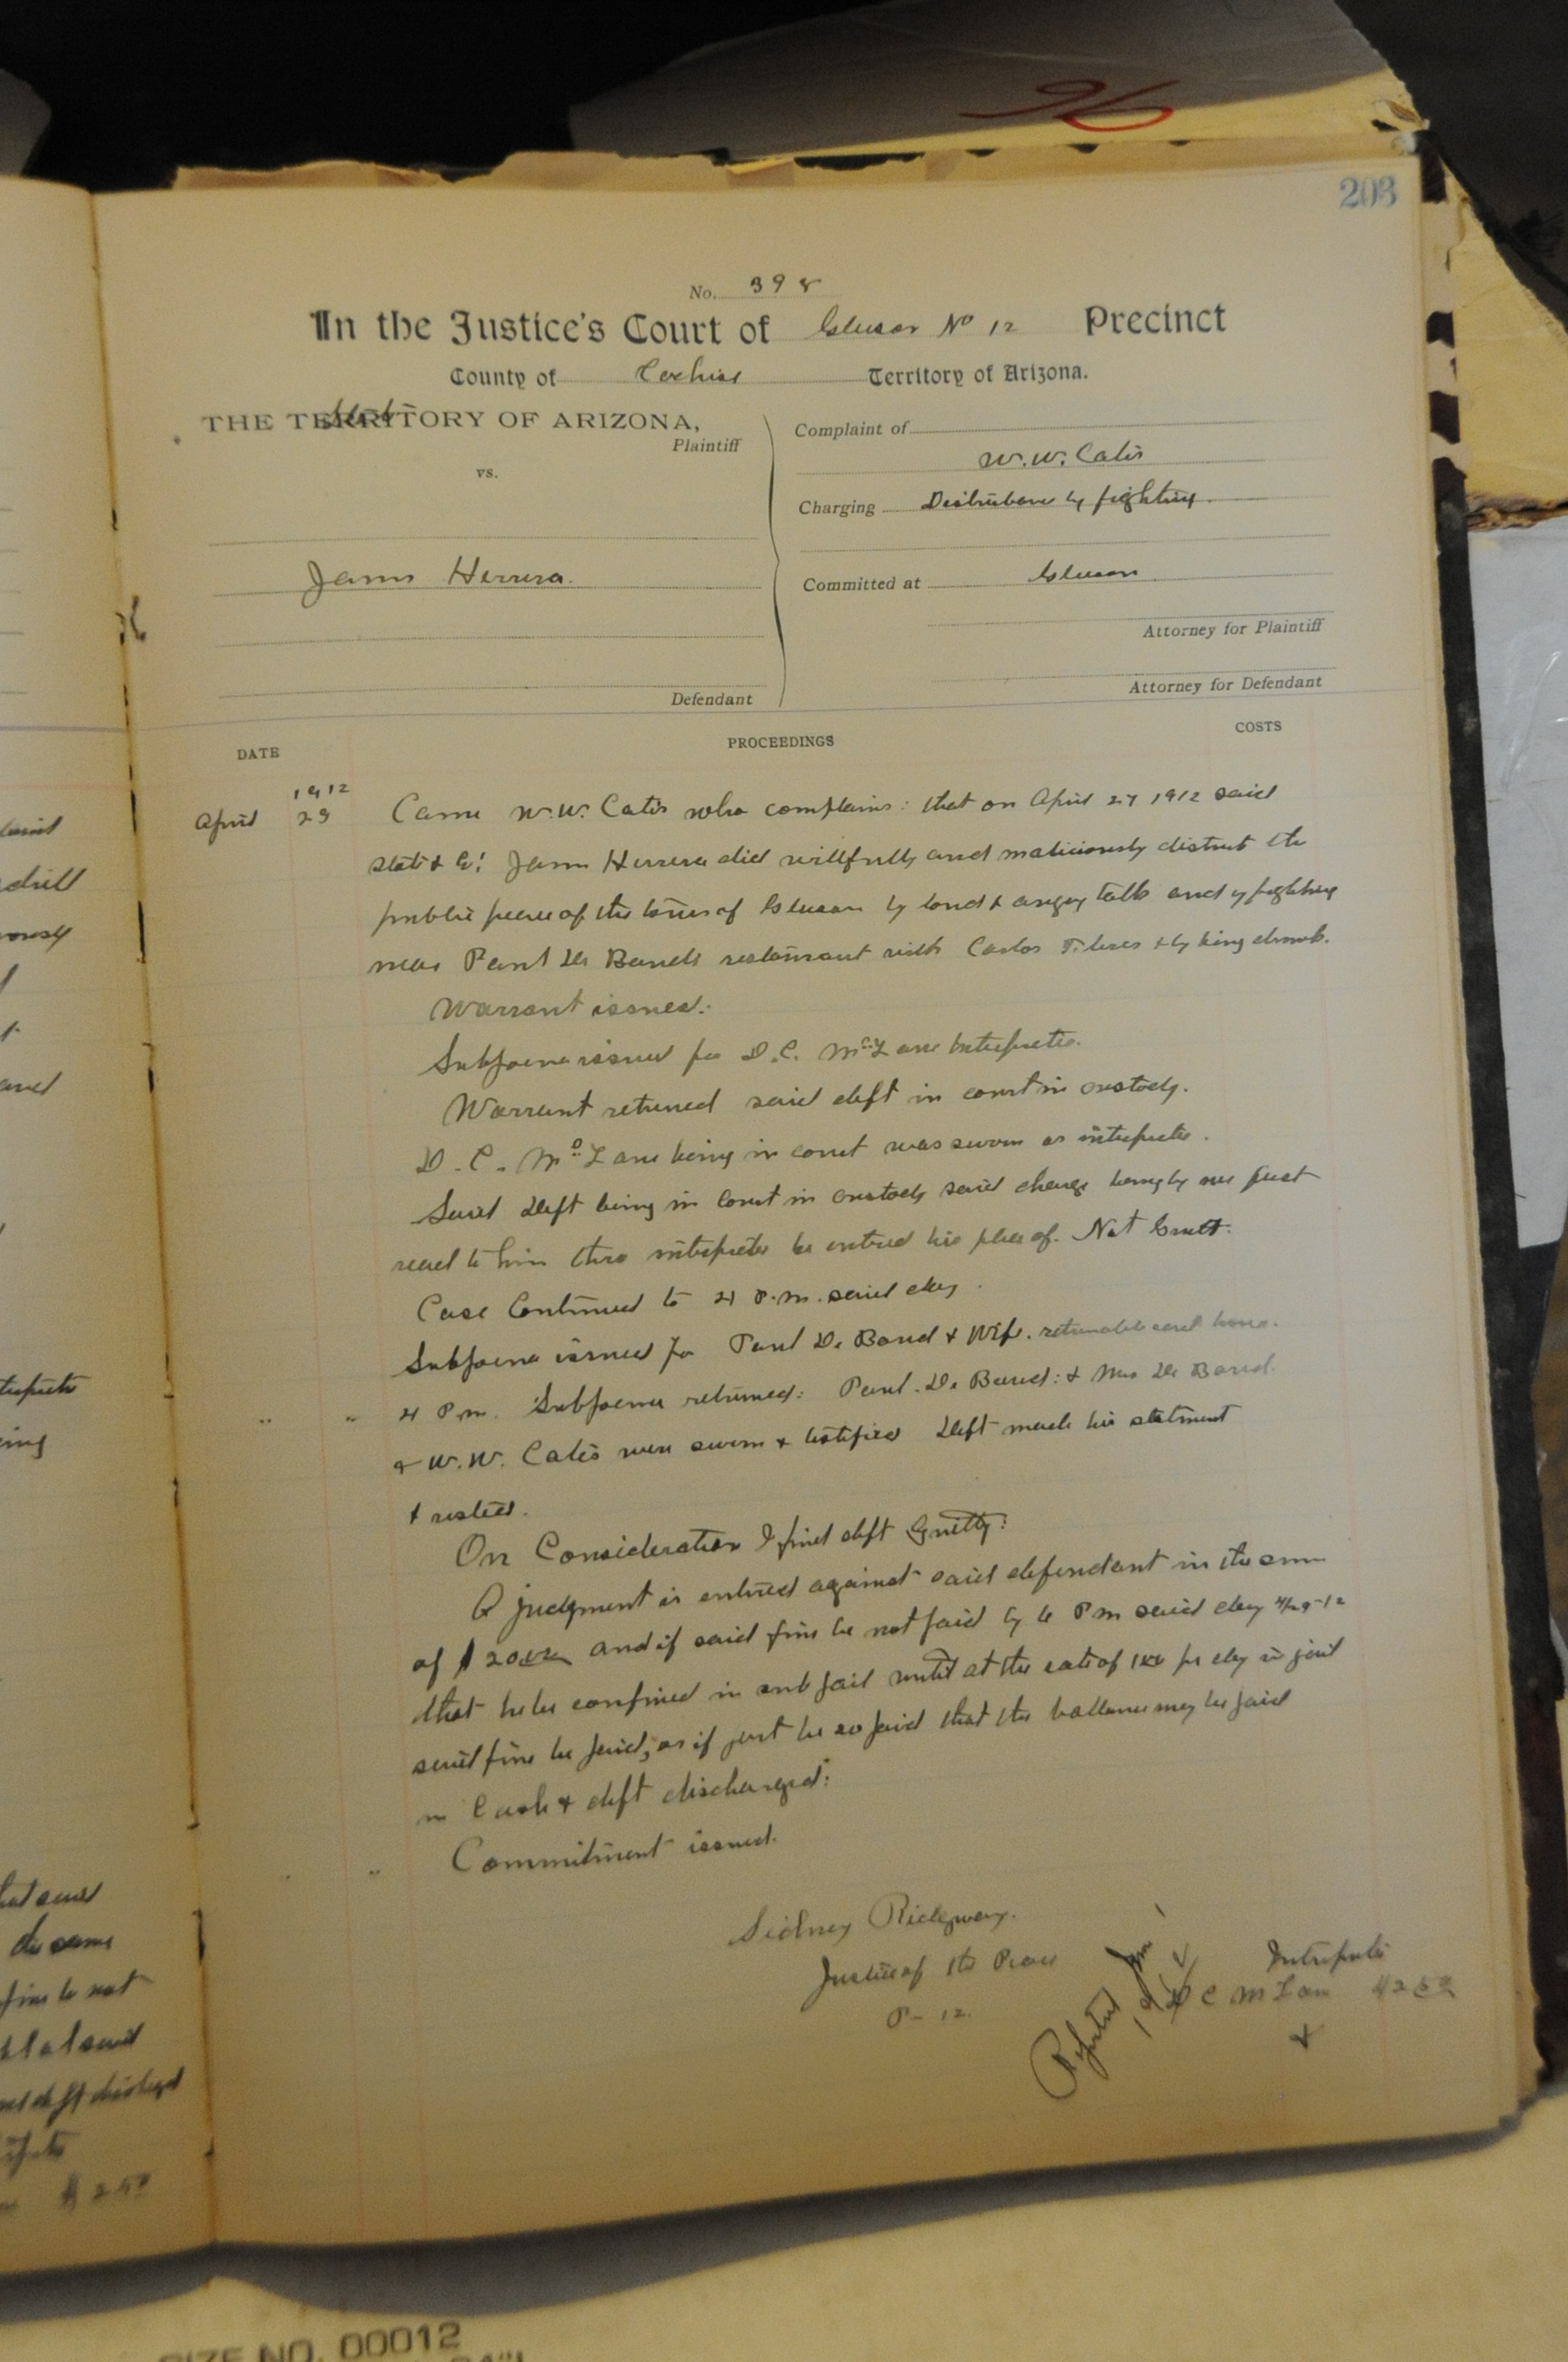 96
203
No. 398
In the Justice's Court of Gleeson No 12 Precinct
County of Cochise Territory of Arizona.
THE TERRITORY OF ARIZONA,
State
Plaintiff
vs.
Herrera.
Defendant
Complaint of
W. W. Cates
Charging Disturbance by fighting.
Committed at Gleeson
Attorney for Plaintiff
Attorney for Defendant
DATE
PROCEEDINGS
COSTS
1912
April 29 Came W. W. Cates who complains: that on April 27 1912 said
State & Co: Herrera did willfully and maliciously disturb the
public peace of the town of Gleeson by loud & angry talk and by fighting
near Paul De Bauds restaurant with Carlos & by being drunk.
Warrant issued:
Subpoena issued for D. C. McLane Interpreter.
Warrant returned said deft in court in custody.
D. C. McLane being in court was sworn as interpreter.
Said Deft being in Court in custody said charge being by me first
read to him thro interpreter he entered his plea of. Not Guilty.
Case Continued to 4 P.m. said day.
Subpoena issued for Paul De Baud & Wife. returnable said hour.
" " 4 P.m. Subpoena returned: Paul. De Baud: & Mrs De Baud.
& W. W. Cates were sworn & testified Deft made his statment
& rested.
On Consideration I find deft Guilty:
A judgment is entered against said defendant in the sum
of $ 20.00 and if said fine be not paid by 6 Pm said day 4/29-12
that he be confined in sub jail until at the rate of 1.00 per day in jail
said fine be paid, or if part be so paid that the ballance may be paid
in Cash & deft discharged:
" " Commitment issued.
Sidney Ridgway.
Justice of the Peace
P- 12.
Reported
Interpreter
D C McLane $2.50
drill
and
ing
that said
the same
fine be not
said
deft discharged
$2.50
SIZE NO. 00012